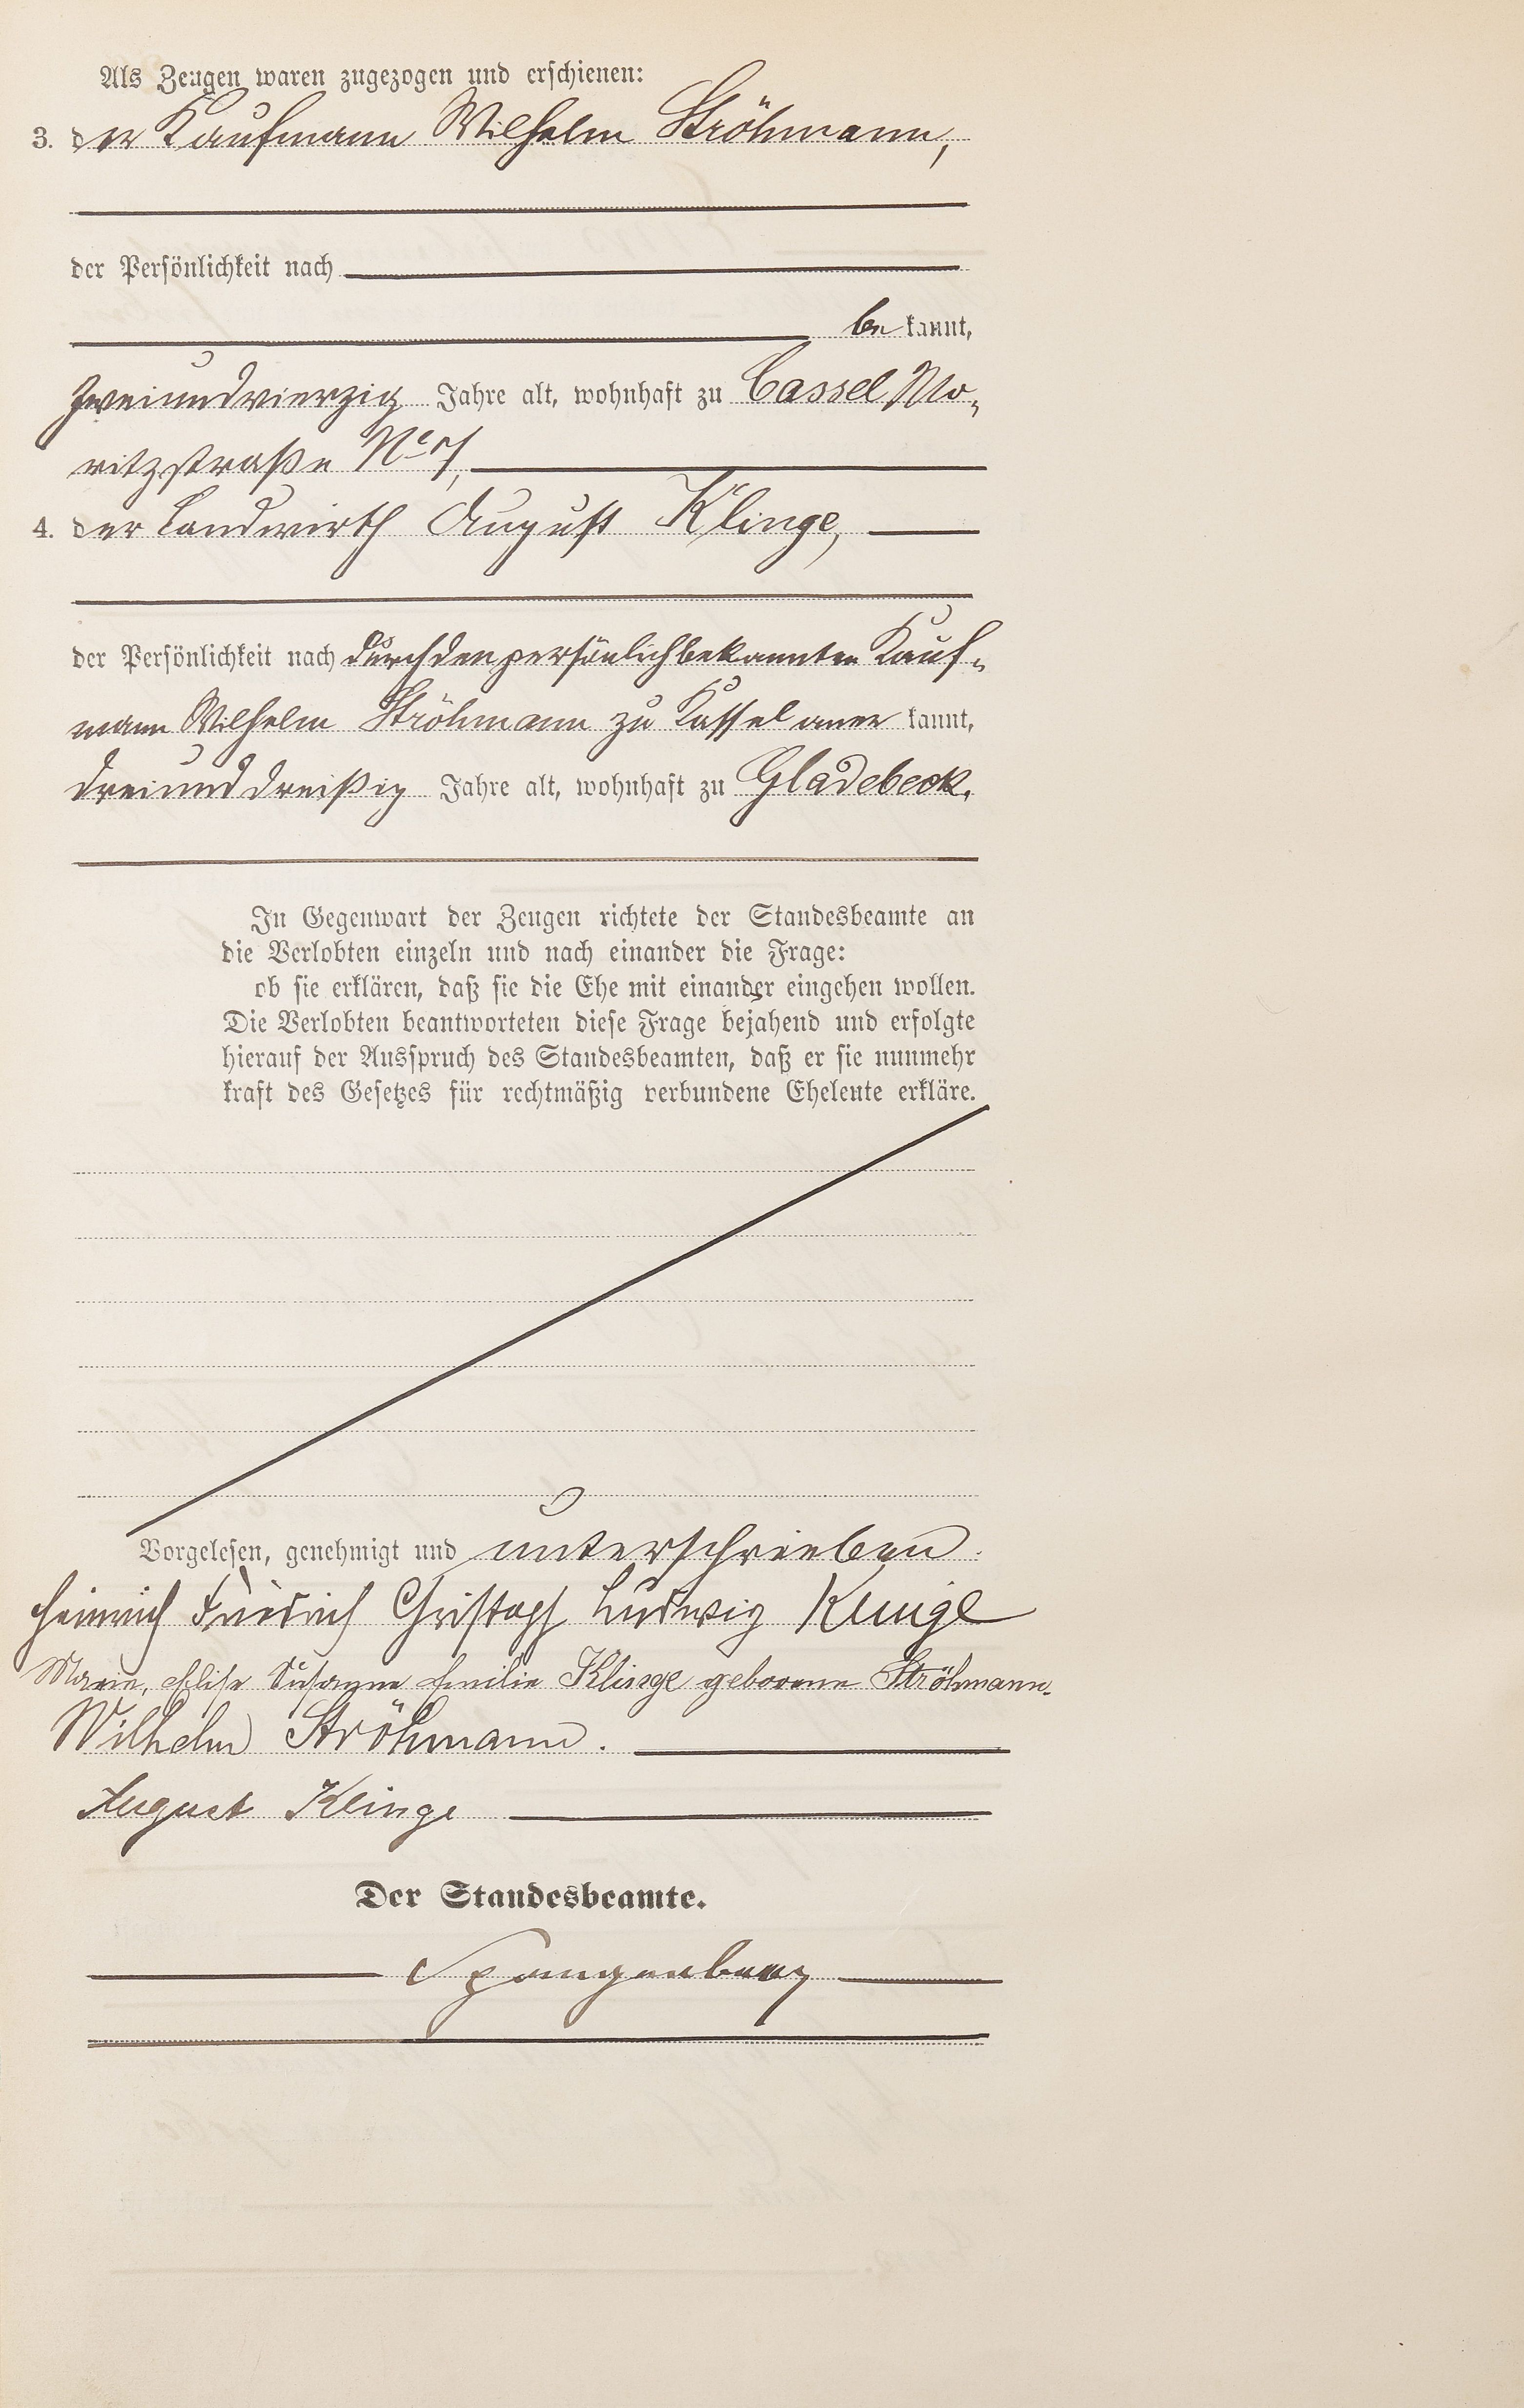 Als Zeugen waren zugezogen und erschienen:
3. der Kaufmann Wilhelm Ströhmann,
der Persönlichkeit nach
be kannt,
zweiundvierzig Jahre alt, wohnhaft zu Cassel Mo-
ritzstraße No
4. der Landwirth August Klinge,
der Persönlichkeit nach durch den persönlich bekannten Kauf-
mann Wilhelm Ströhmann zu Kassel aner kannt,
dreiunddreißig Jahre alt, wohnhaft zu Gladebeck.
In Gegenwart der Zeugen richtete der Standesbeamte an
die Verlobten einzeln und nach einander die Frage:
ob sie erklären, daß sie die Ehe mit einander eingehen wollen.
Die Verlobten beantworteten diese Frage bejahend und erfolgte
hierauf der Ausspruch des Standesbeamten, daß er sie nunmehr
kraft des Gesetzes für rechtmäßig verbundene Eheleute erkläre.
Vorgelesen, genehmigt und unterschrieben.
Heinrich Friedrich Christoph Ludwig Klinge
Marie, Elise Susanne Emilie Klinge geborene Ströhmann.
Wilhelm Ströhmann.
August Klinge
Der Standesbeamte.
Spangenberg